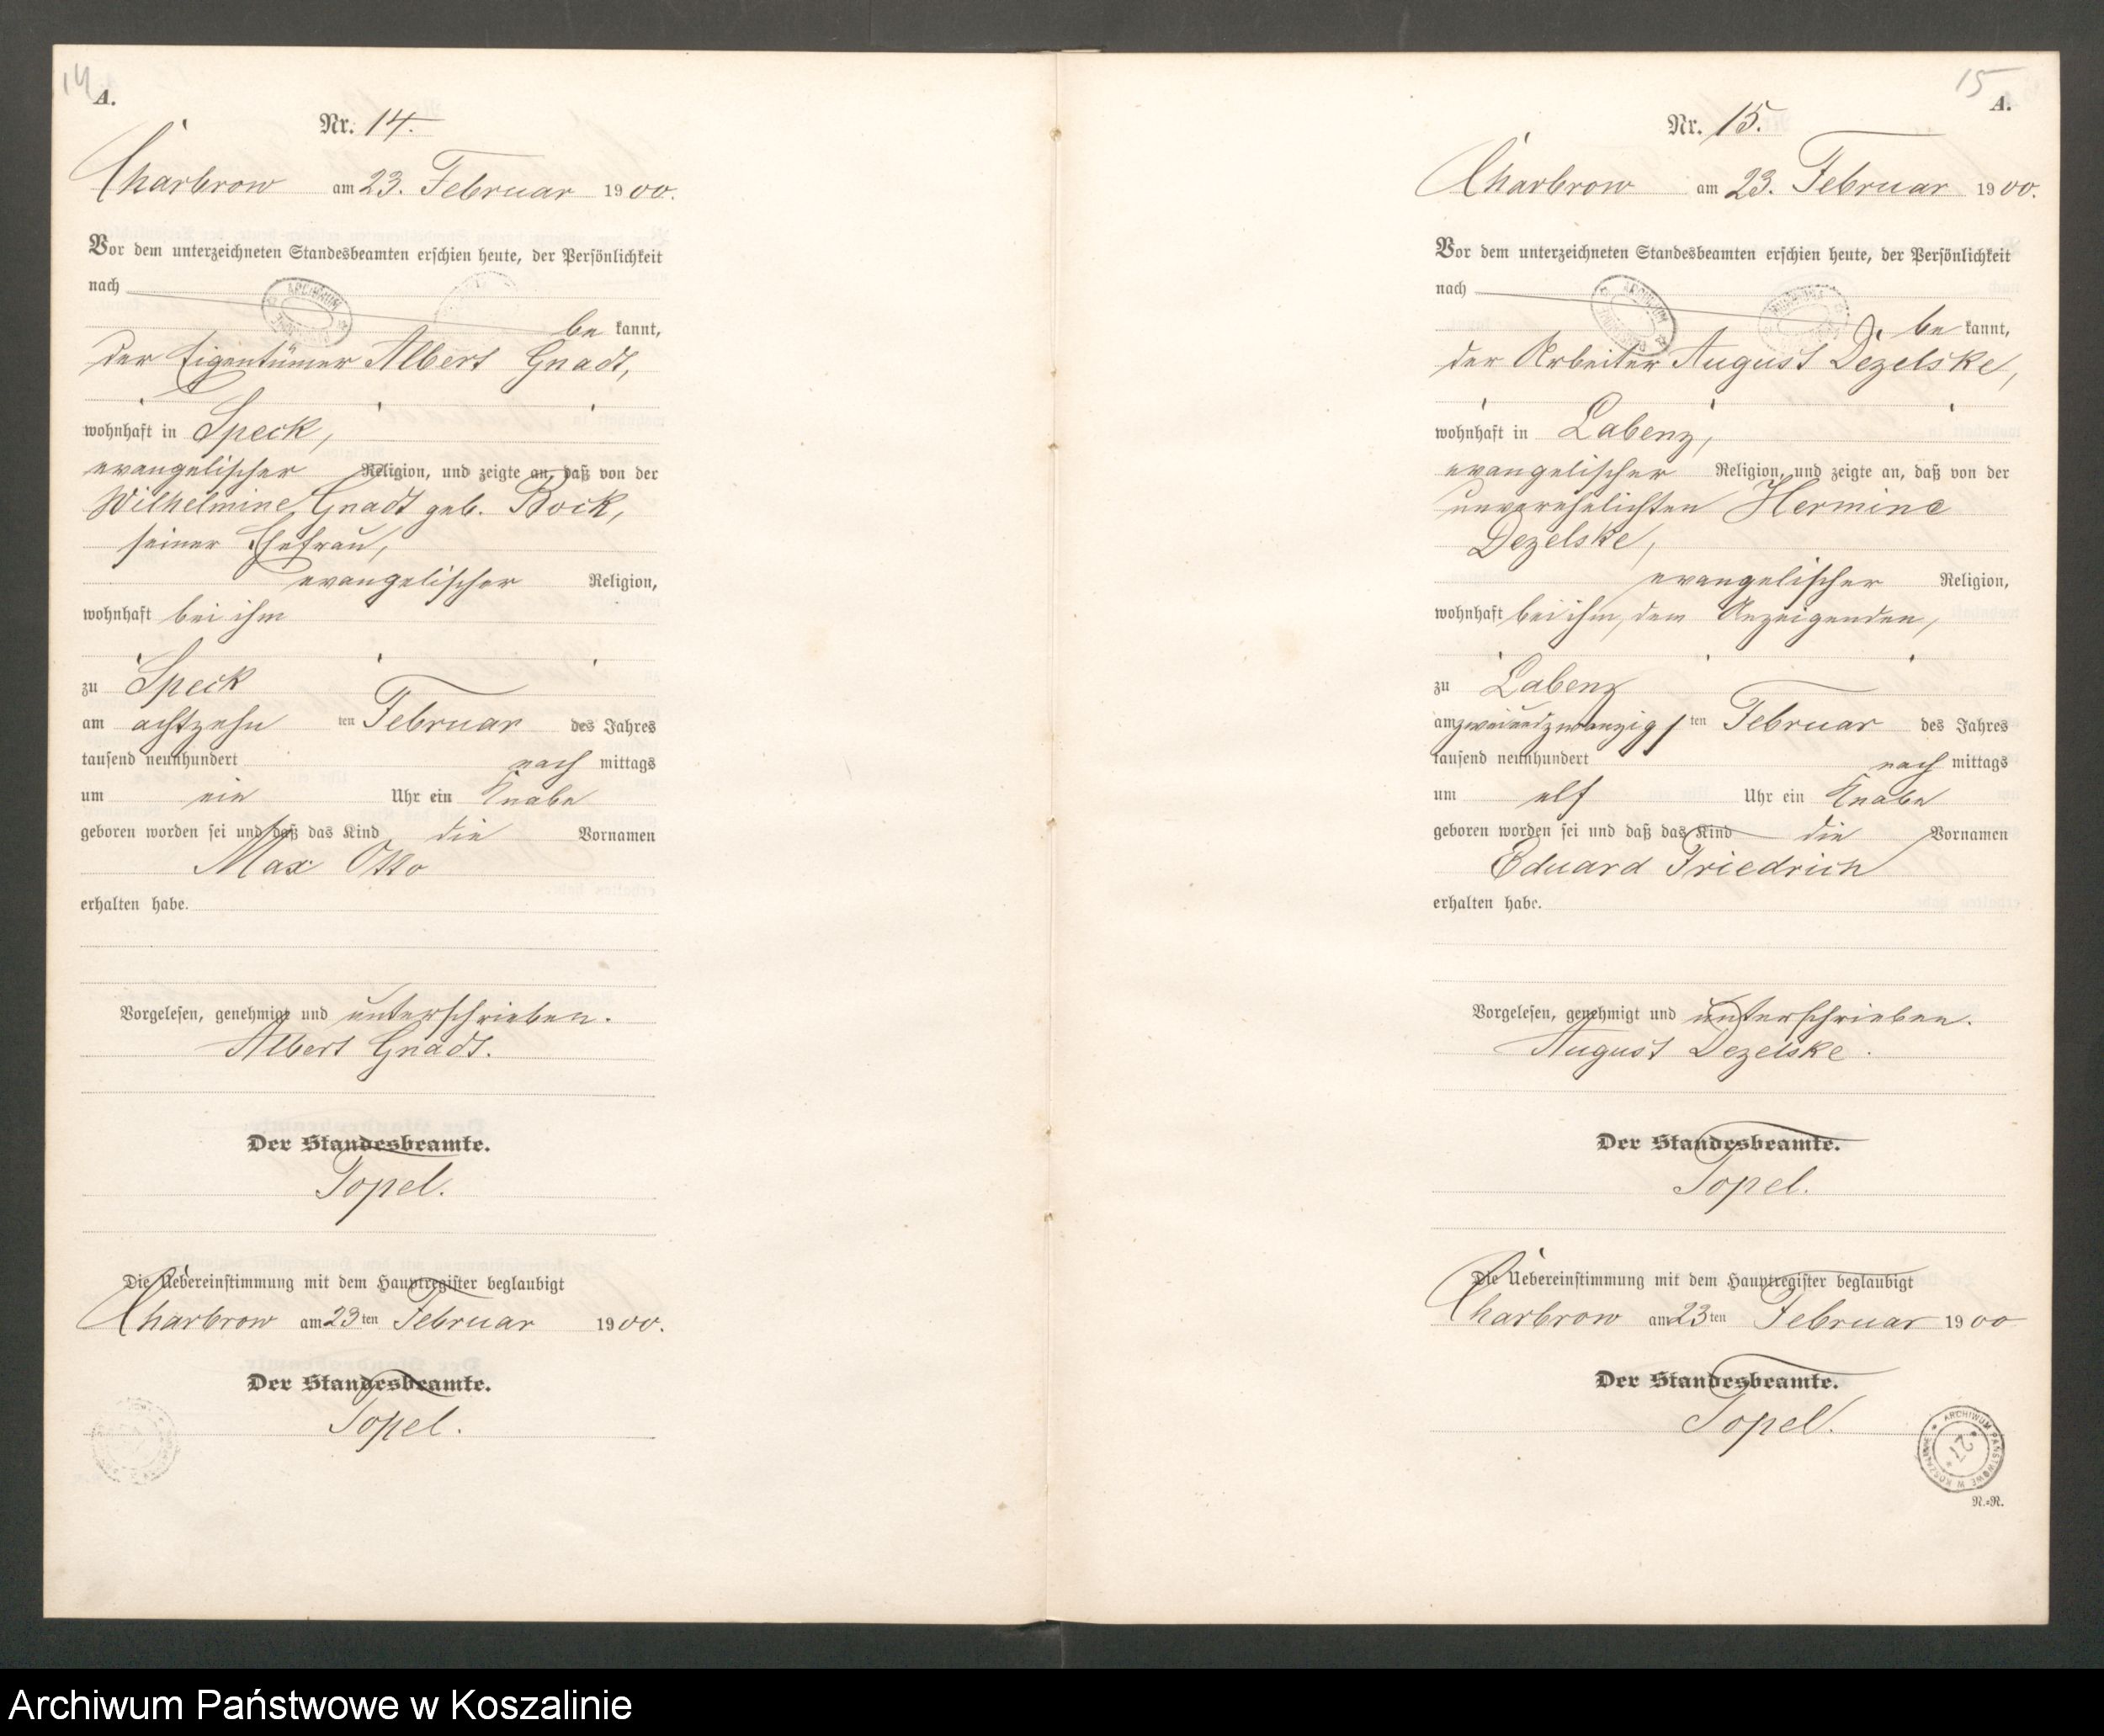 14
A.
Nr. 14.
Charbrow am 23. Februar 1900.
Vor dem unterzeichneten Standesbeamten erschien heute, der Persönlichkeit
nach
be kannt,
der Eigentümer Albert Gnadt,
wohnhaft in Speck,
evangelischer Religion, und zeigte an, daß von der
Wilhelmine Gnadt geb. Bock,
seiner Ehefrau,
evangelischer Religion,
wohnhaft bei ihm
zu Speck
am achtzehn ten Februar des Jahres
tausend neunhundert nach mittags
um ein Uhr ein Knabe
geboren worden sei und daß das Kind die Vornamen
Max Otto
erhalten habe.
Vorgelesen, genehmigt und unterschrieben.
Albert Gnadt.
Der Standesbeamte.
Topel.
Die Uebereinstimmung mit dem Hauptregister beglaubigt
Charbrow am 23ten Februar 1900.
Der Standesbeamte.
Topel.
15
A.
Nr. 15.
Charbrow am 23. Februar 1900.
Vor dem unterzeichneten Standesbeamten erschien heute, der Persönlichkeit
nach
be kannt,
der Arbeiter August Dezelske,
wohnhaft in Labenz,
evangelischer Religion, und zeigte an, daß von der
unverehelichten Hermine
Dezelske,
evangelischer Religion,
wohnhaft bei ihm, dem Anzeigenden,
zu Labenz
am zweiundzwanzig ten Februar des Jahres
tausend neunhundert nach mittags
um elf Uhr ein Knabe
geboren worden sei und daß das Kind die Vornamen
Eduard Friedrich
erhalten habe.
Vorgelesen, genehmigt und unterschrieben.
August Dezelske.
Der Standesbeamte.
Topel.
Die Uebereinstimmung mit dem Hauptregister beglaubigt
Charbrow am 23ten Februar 1900
Der Standesbeamte.
Topel.
ARCHIWUM PAŃSTWOWE W KOSZALINIE
27
N.=R.
Archiwum Państwowe w Koszalinie